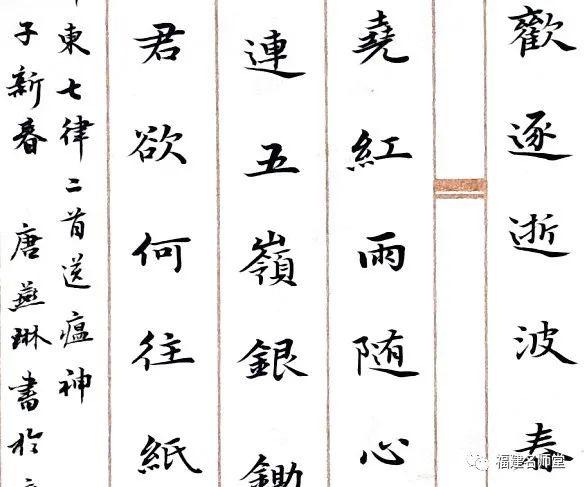 歡逐逝波春
堯紅雨随心
連五嶺銀鋤
君欲何往紙
東七律二首送瘟神
子新春 唐燕琳書於
福建名师堂